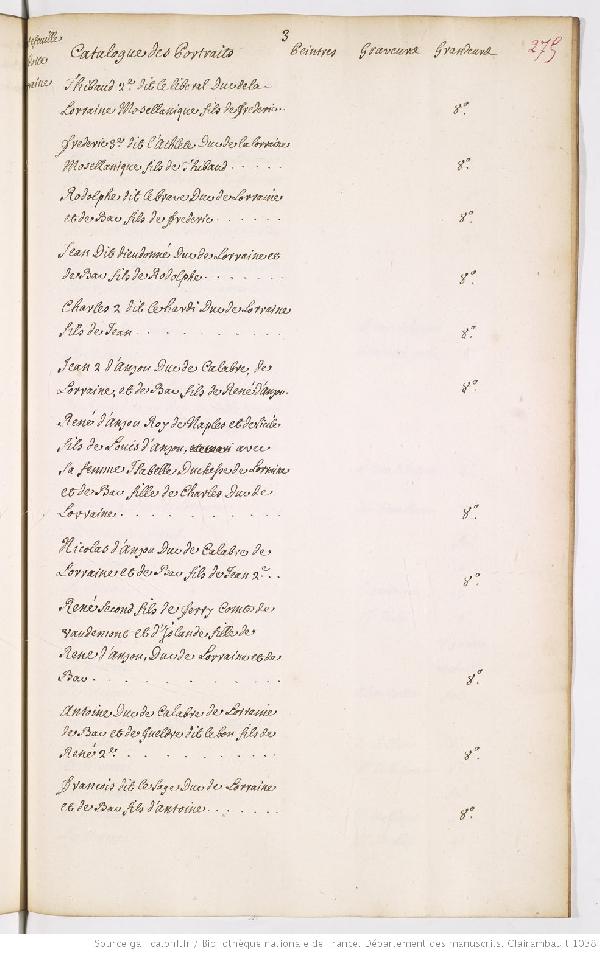 3
Catalogue des Portraits Peintres Graveurs Grandeurs 275
Thibaud 2e. dit le liberal Duc de la
Lorraine Mosellanique fils de frederic.. 8°.
frederic 3e. dit l'Achlete Duc de la Lorraine
Mosellanique fils de Thibaud . . . . . 8°.
Rodolphe dit le brave Duc de Lorraine
et de Bar fils de frederic . . . . . 8°.
Jean Dit dieudonné Duc de Lorraine et
de Bar fils de Rodolphe . . . . . . 8°.
Charles 2 dit le hardi Duc de Lorraine
fils de Jean . . . . . . . . . 8°.
Jean 2 d'anjou Duc de Calabre, de
Lorraine, et de Bar fils de René d'anjou. 8°.
René d'anjou Roy de Naples et de Sicile
fils de Louis d'anjou, avec
Sa femme Isabelle Duchesse de Lorraine
et de Bar fille de Charles Duc de
Lorraine . . . . . . . . . . 8°.
Nicolas d'anjou Duc de Calabre de
Lorraine et de Bar fils de Jean 2e. . . 8°.
René Second fils de ferry Comte de
vaudemont et d'Jolande fille de
René d'anjou, Duc de Lorraine et de
Bar . . . . . . . . . . . 8°.
Antoine Duc de Calabre de Lorraine
de Bar et de Gueldre dit le bon fils de
René 2e. . . . . . . . . . 8°.
francois dit le Sage Duc de Lorraine
et de Bar fils d'antoine . . . . . . 8°.
Source gallica.bnf.fr / Bibliothèque nationale de France. Département des manuscrits. Clairambault 1038